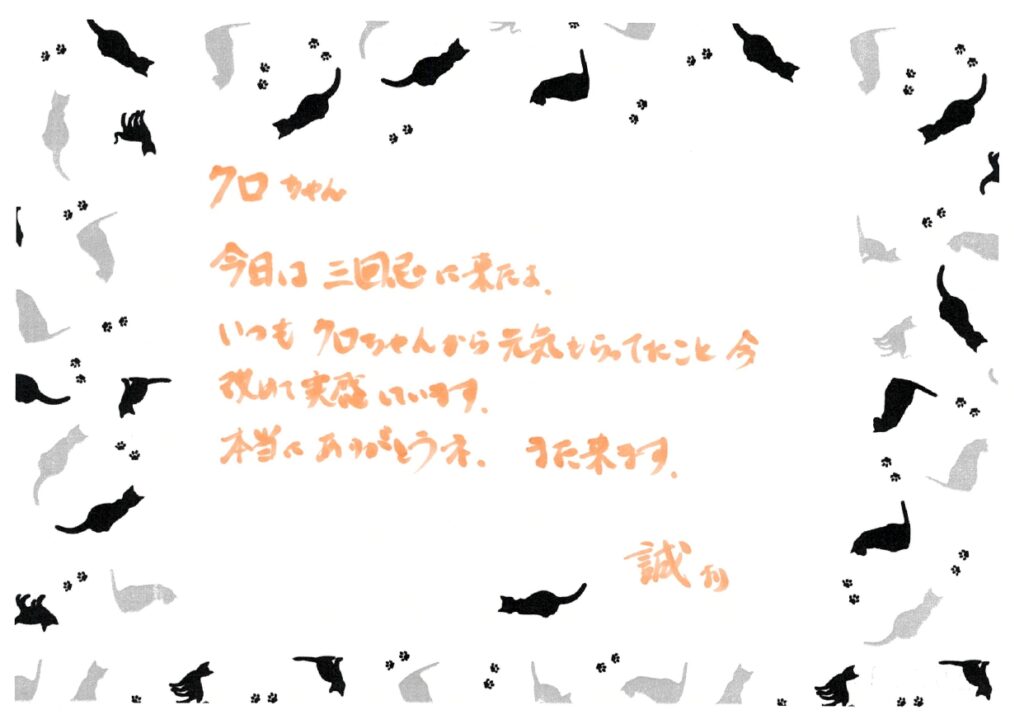 クロちゃん
今日は三回忌に来たよ.
いつもクロちゃんから元気もらってたこと今
改めて実感しています.
本当にありがとうネ. また来ます.
誠より